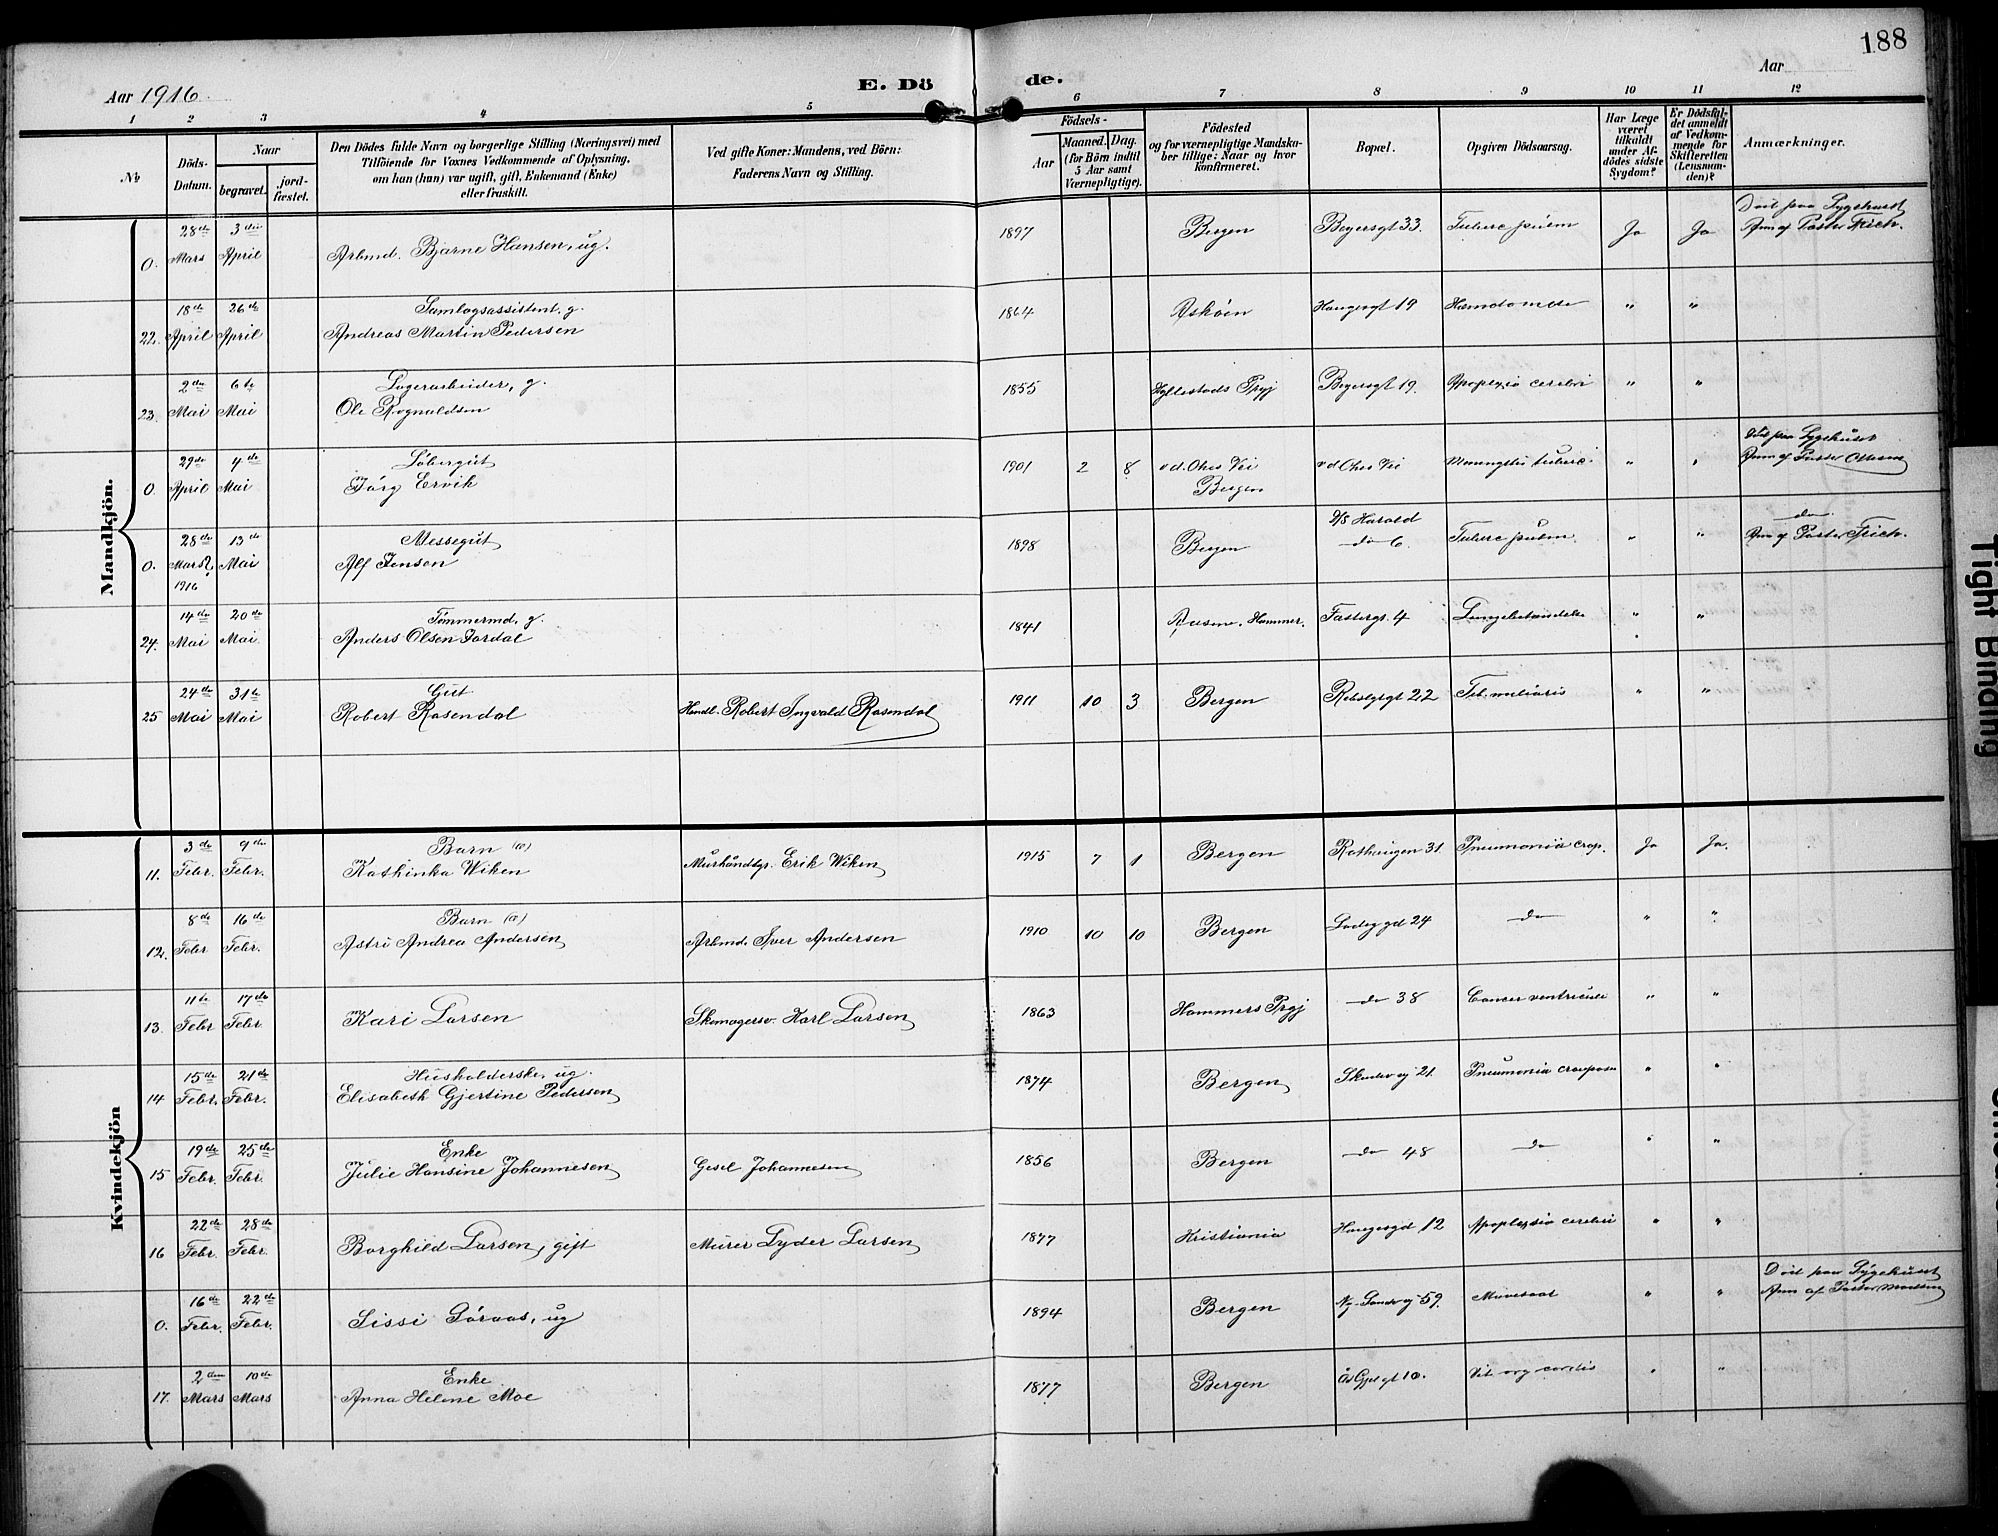 188
Aar 1916
E. Döde.
Aar
1 2 3 4 5 6 7 8 9 10 11 12
№
Döds-Datum.
Naar
begravet.
jordfæstet.
Den Dödes fulde Navn og borgerlige Stilling (Næringsvei) med
Tilföiende for Voxnes Vedkommende af Oplysning,
om han (hun) var ugift, gift, Enkemand (Enke)
eller fraskilt.
Ved gifte Koner: Mandens, ved Börn:
Faderens Navn og Stilling.
Födsels-
Aar
Maaned. Dag.
(for Börn indtil
5 Aar samt
Værnepligtige).
Födested
og for værnepligtige Mandska-
ber tillige: Naar og hvor
konfirmeret.
Bopæl.
Opgiven Dödsaarsag.
Har Læge
været
tilkaldt
under Af-
dödes sidste
Sygdom?
Er Dödsfal-
det anmeldt
af Vedkom-
mende for
Skifteretten
(Lensman-
den)?
Anmærkninger.
Mandkjön.
0. 28de Mars 3die April Arbmd. Bjarne Hansen, ug. 1897 Bergen Beyersgt 33. Tuberc pulm Ja Ja Död paa Sygehuset
Anm af Pastor Frich.
22. 18de April 26de April Samlagsassistent, g.
Andreas Martin Pedersen 1864 Askøen Haugesgt 19 " "
23. 2den Mai 6te Mai Lagerarbeider, g.
Ole Rognaldsen 1855 Hyllestads Prgj Beyersgt 19. Apoplexia cerebri " "
0. 29de April 4de Mai Løbergut
Jørg Ervik 1901 2 8 v. d. Ohes Vei
Bergen v d Ohes Vei tuberc " " Död paa Sygehuset
Anm af Pastor
0. 28de Mars 1916 13de Mai Messegut
Alf Jensen 1898 Bergen D/S Harald
do 6. Tuberc pulm. " " do
Anm af Pastor Frich.
24. 14de Mai 20de Mai Tømmermd, g.
Anders Olsen Jordal 1841 Hammer. 4 Lungebetændelse " "
25 24de Mai 31te Mai Gut
Robert Rosendal Handl. Robert Ingvald Rosendal 1911 10 3 Bergen 22 Tub. miliaris " "
Kvindekjön
11. 3de Febr. 9de Febr. Barn (æ)
Kathinka Wiken Murhåndtgr. Erik Wiken 1915 7 1 Bergen Rothaugen 31 Pneumonia crop. Ja Ja.
12. 8de Febr 16de Febr. Barn (æ)
Astri Andrea Andersen Arbmd. Iver Andersen 1910 10 10 Bergen 24 do " "
13. 11te Febr 17de Febr. Kari Larsen Skomagersv. Karl Larsen 1863 Hammers Prgj do 38 Cancer ventriculi " "
14 15de Febr. 21de Febr. Husholderske, ug.
Elisabeth Gjertine Pedersen 1874 Bergen 21. Pneumonia crouposa " "
15 19de Febr. 25de Febr. Enke
Julie Hansine Johannesen Gesel Johannesen 1856 Bergen do 48 do " "
16 22de Febr. 28de Febr. Borghild Larsen, gift Murer Lyder Larsen 1877 Kristiania Haugesgd 12 Apoplexia cerebri " "
0. 16de Febr. 22de Febr. Sissi, ug 1894 Bergen Ny 59. " " Död paa Sygehuset
Anm af Pastor
17. 2den Mars 10de Mars Enke
Anna Helene Moe 1877 Bergen 10. Vit. org cordis " "
Tight Binding